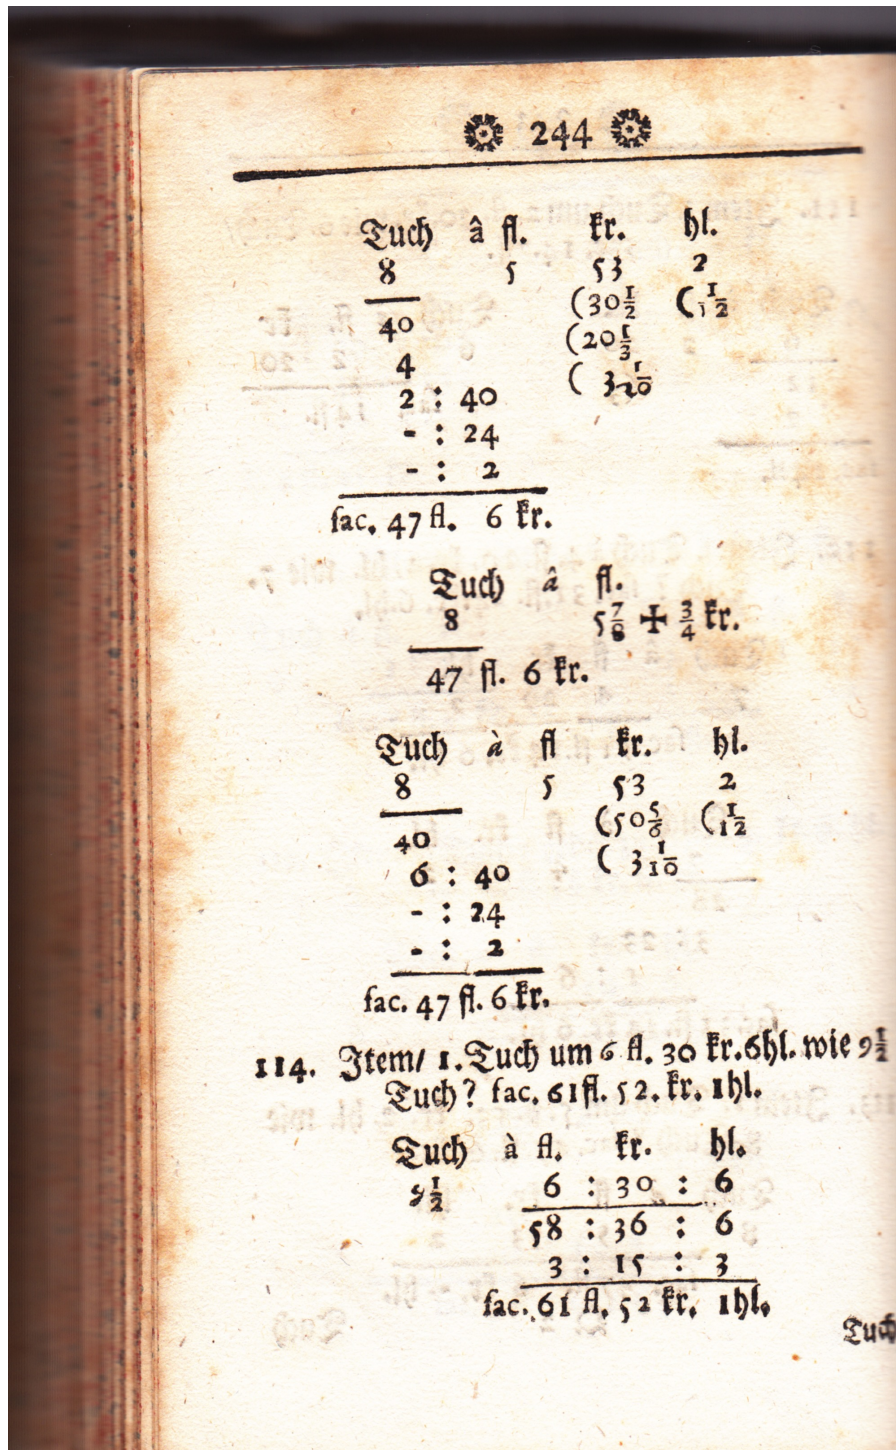 244
Tuch â fl. kr. hl.
8 5 53 2
(30 1/2 (1 1/2
40 (20 1/3
4 ( 3 1/20
2 : 40
- : 24
- : 2
fac. 47 fl. 6 kr.
Tuch â fl.
8 5 7/8 + 3/4 kr.
47 fl. 6 kr.
Tuch à fl kr. hl.
8 5 53 2
40 (50 5/6 (1 1/2
6 : 40 ( 3 1/10
- : 24
- : 2
fac. 47 fl. 6 kr.
114. Item/ 1. Tuch um 6 fl. 30 kr. 6hl. wie 9 1/2
Tuch? fac. 61fl. 52. kr. 1hl.
Tuch à fl. kr. hl.
9 1/2 6 : 30 : 6
58 : 36 : 6
3 : 15 : 3
fac. 61 fl. 52 kr. 1hl.
Tuch